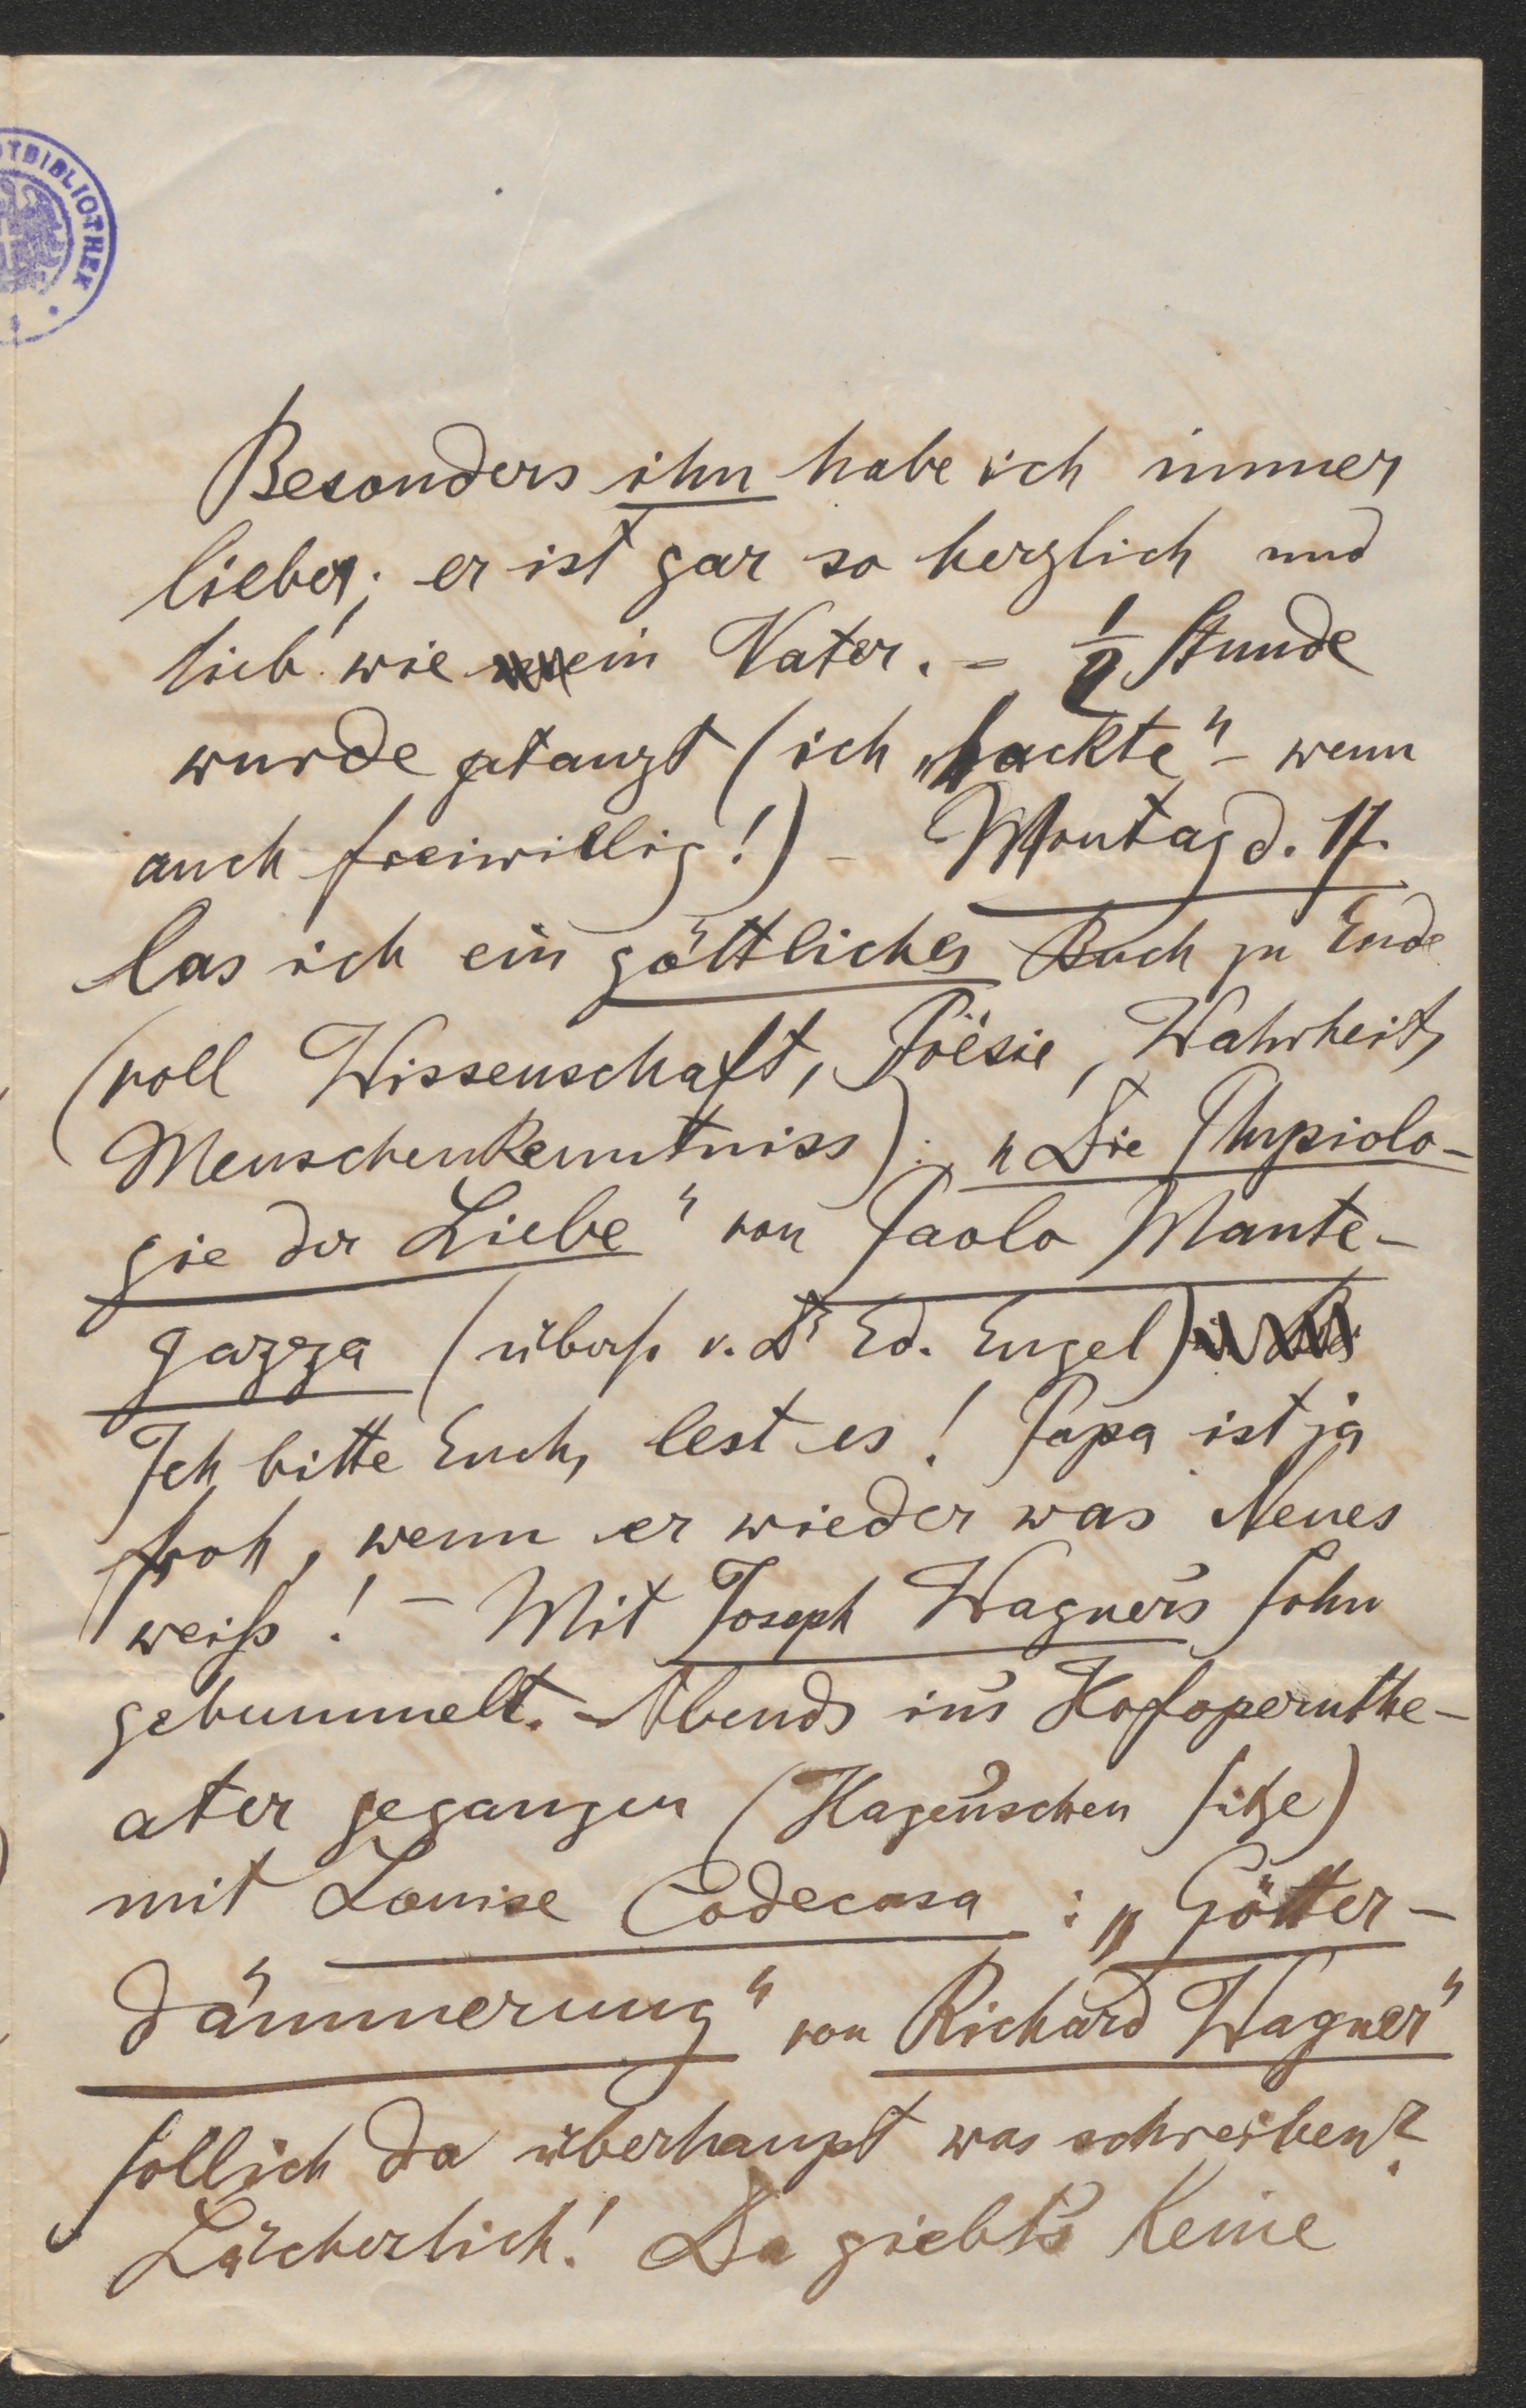 TBIBLIOTHEK
Besonders ihn habe ich immer
lieber; er ist gar so herzlich und
lieb wie ein Vater. – ½ Stunde
wurde getanzt (ich „hackte“ – wenn
auch freiwillig!) – Montag d. 17.
las ich ein göttliches Buch zu Ende
(voll Wissenschaft, Poësie, Wahrheit,
Menschenkenntniss): „Die Physiolo-
gie der Liebe“ von Paolo Mante-
gazza (übers. v. Dr Ed. Engel)
Ich bitte Euch, lest es! Papa ist ja
froh, wenn er wieder was Neues
weiß! – Mit Joseph Wagner's Sohn
gebummelt. – Abends in's Hofopernthe-
ater gegangen (Hagen'schen Sitze)
mit Louise Codecasa : „Götter-
dämmerung“ von Richard Wagner“
Soll ich da überhaupt was schreiben?
Lächerlich! Da giebt's keine